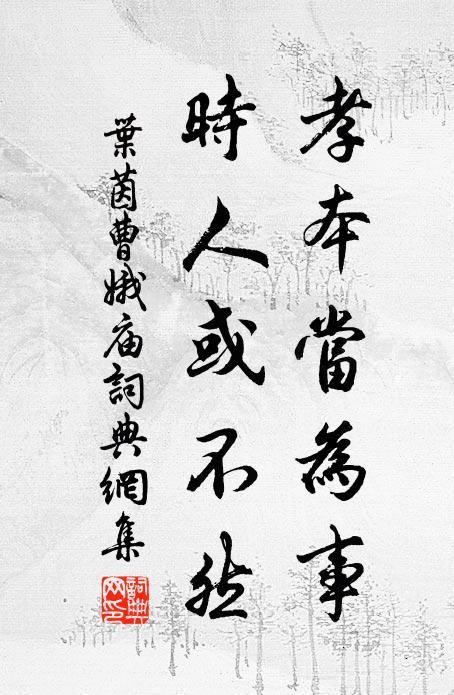 孝本當為事
時人或不然
葉茵曹娥庙詞典網集
詞典網印